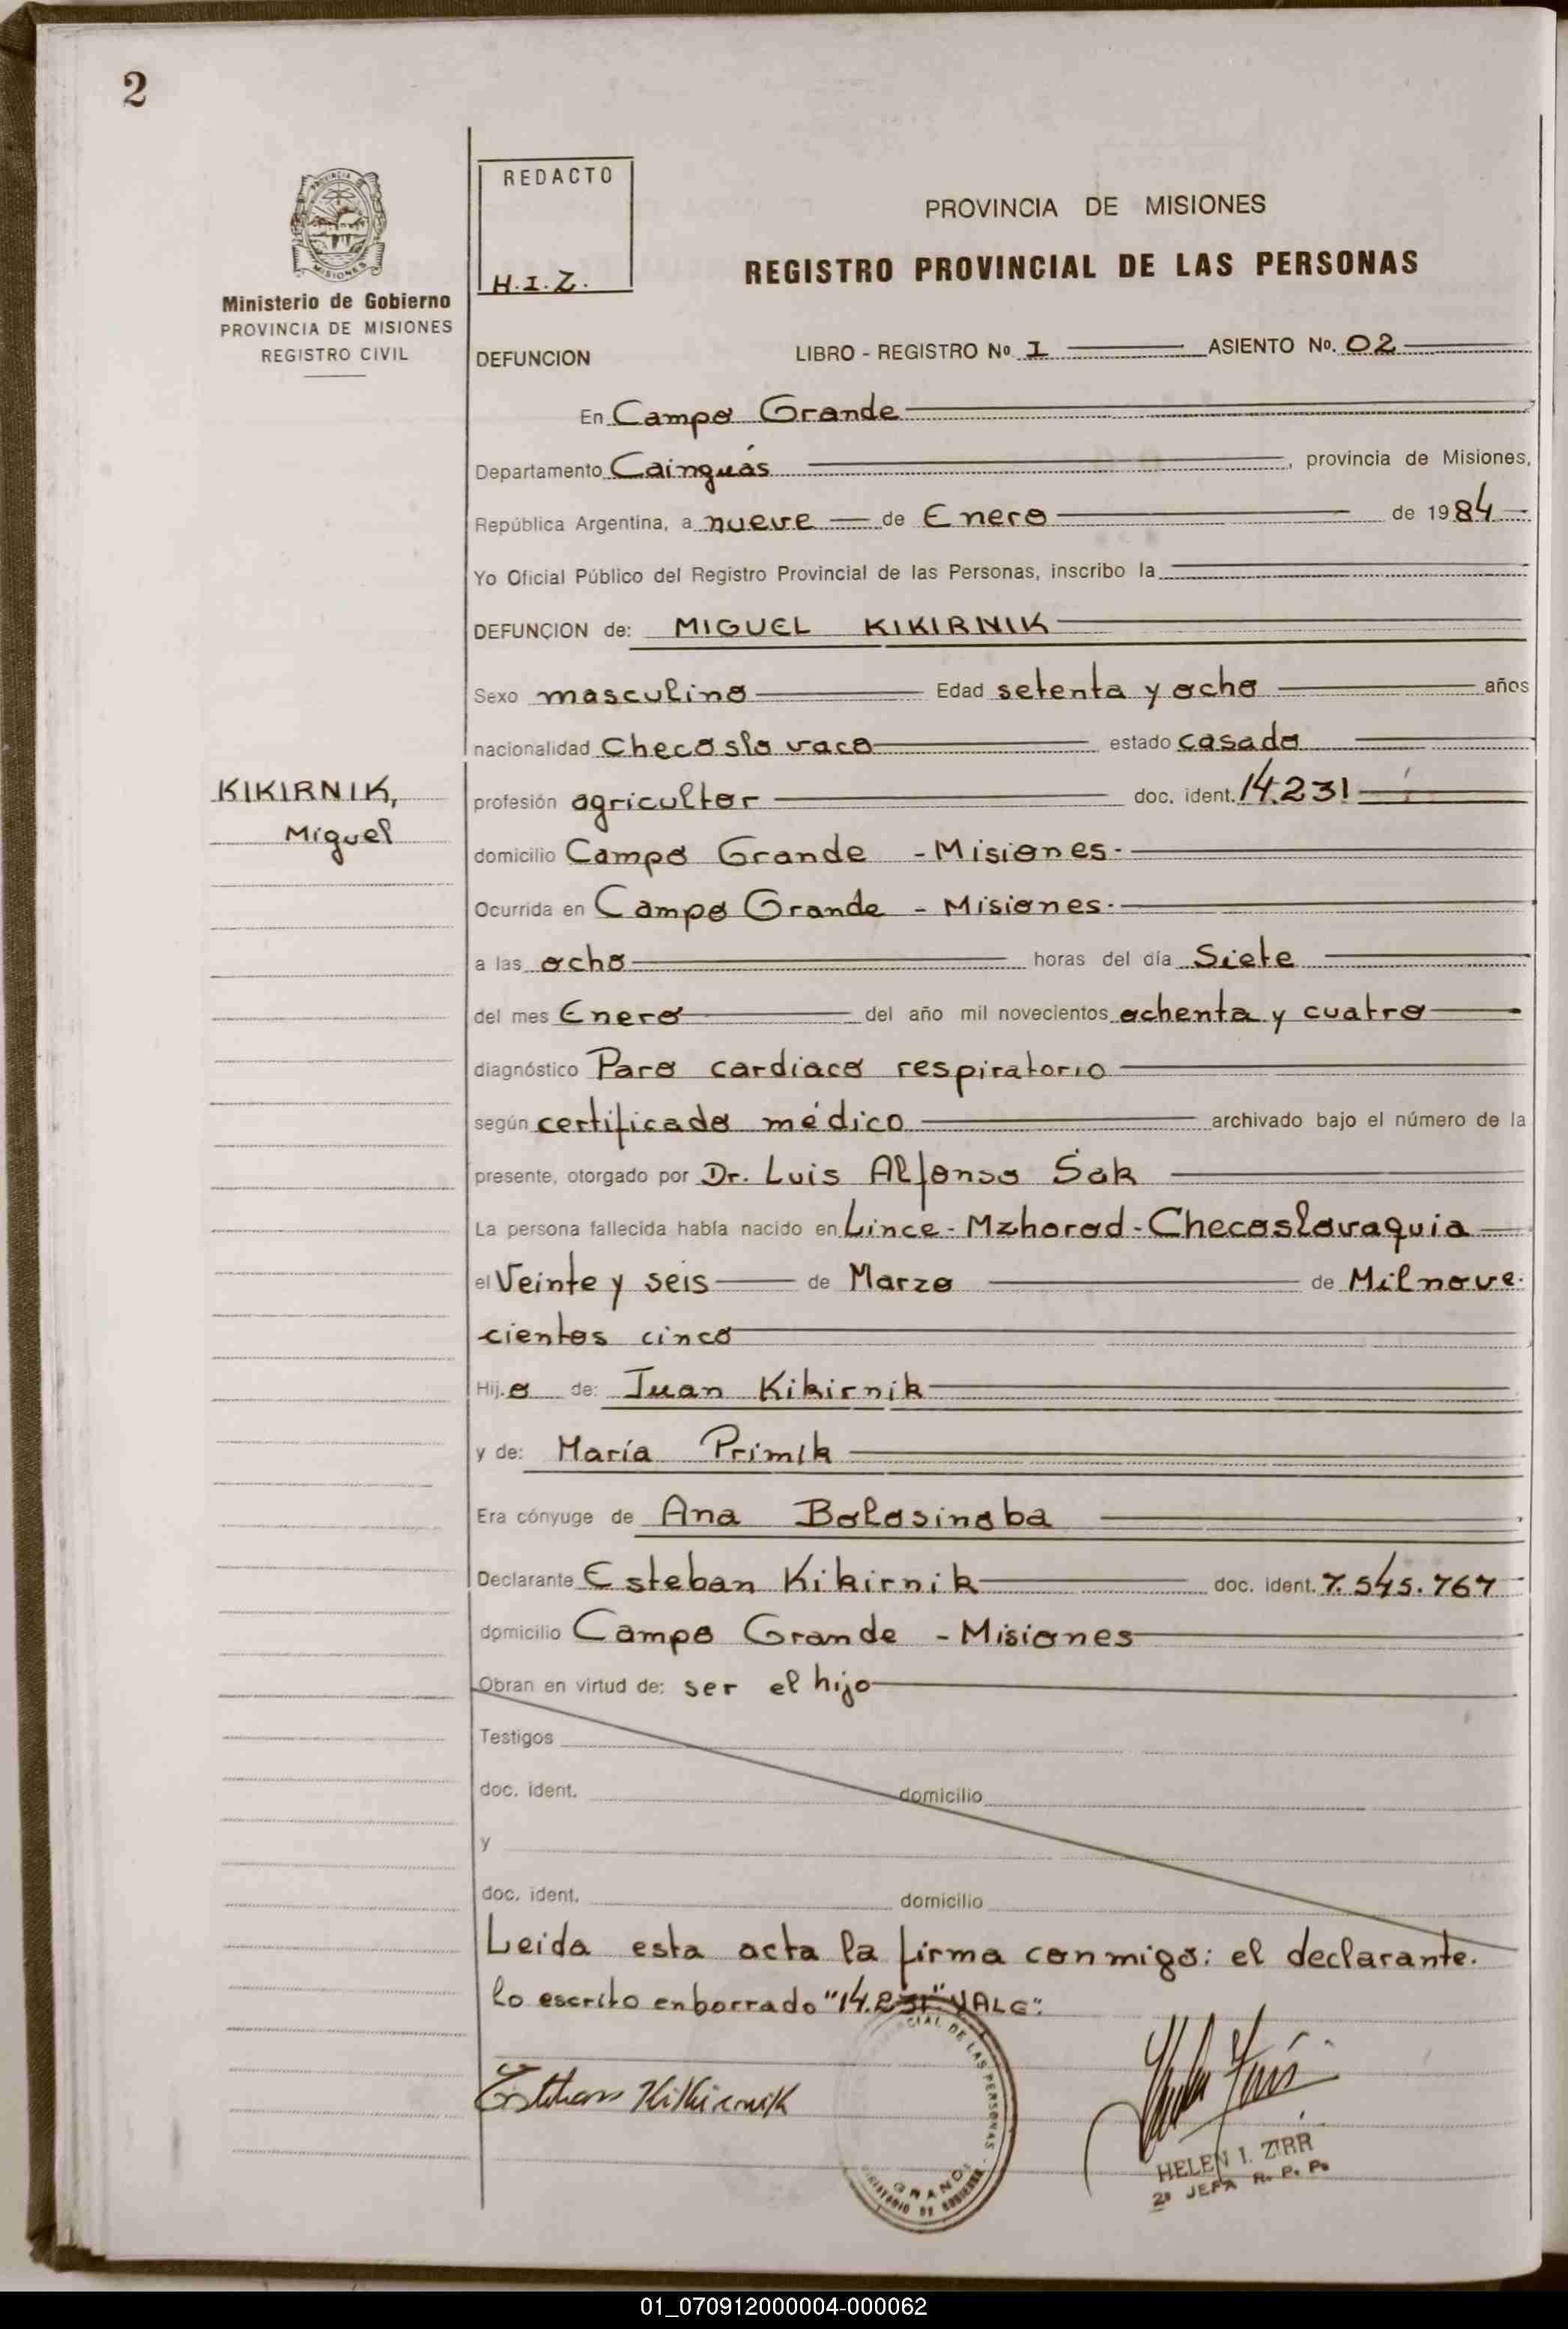 2
PROVINCIA
MISIONES
Ministerio de Gobierno
PROVINCIA DE MISIONES
REGISTRO CIVIL
REDACTO
H.I.Z.
PROVINCIA DE MISIONES
REGISTRO PROVINCIAL DE LAS PERSONAS
DEFUNCION LIBRO - REGISTRO Nº I ASIENTO Nº. 02
En Campo Grande
Departamento Cainguás, provincia de Misiones,
República Argentina, a nueve de Enero de 1984
Yo Oficial Público del Registro Provincial de las Personas, inscribo la
DEFUNCION de: MIGUEL KIKIRNIK
Sexo masculino Edad setenta y ocho años
nacionalidad Checoslovaco estado casado
KIKIRNIK,
Miguel
profesión agricultor doc. ident. 14.231
domicilio Campo Grande - Misiones.
Ocurrida en Campo Grande - Misiones.
a las ocho horas del día Siete
del mes Enero del año mil novecientos ochenta y cuatro
diagnóstico Paro cardiaco respiratorio
según certificado médico archivado bajo el número de la
presente, otorgado por Dr. Luis Alfonso Sak
La persona fallecida había nacido en Lince - Mzhorod - Checoslovaquia
el Veinte y seis de Marzo de Milnove-
cientos cinco
Hijo de: Juan Kikirnik
y de: María Primik
Era cónyuge de Ana Bolosinoba
Declarante Esteban Kikirnik doc. ident. 7.545.767
domicilio Campo Grande - Misiones
Obran en virtud de: ser el hijo
Testigos
doc. ident. domicilio
y
doc. ident. domicilio
Leida esta acta la firma conmigo: el declarante.
lo escrito enborrado "14.231" VALE".
Esteban Kikirnik
CIAL DE LAS PERSONAS
GRANDE
MINISTERIO DE GOBIERNO
HELEN I. ZIRR
2º JEFA R. P. P.
01_070912000004-000062